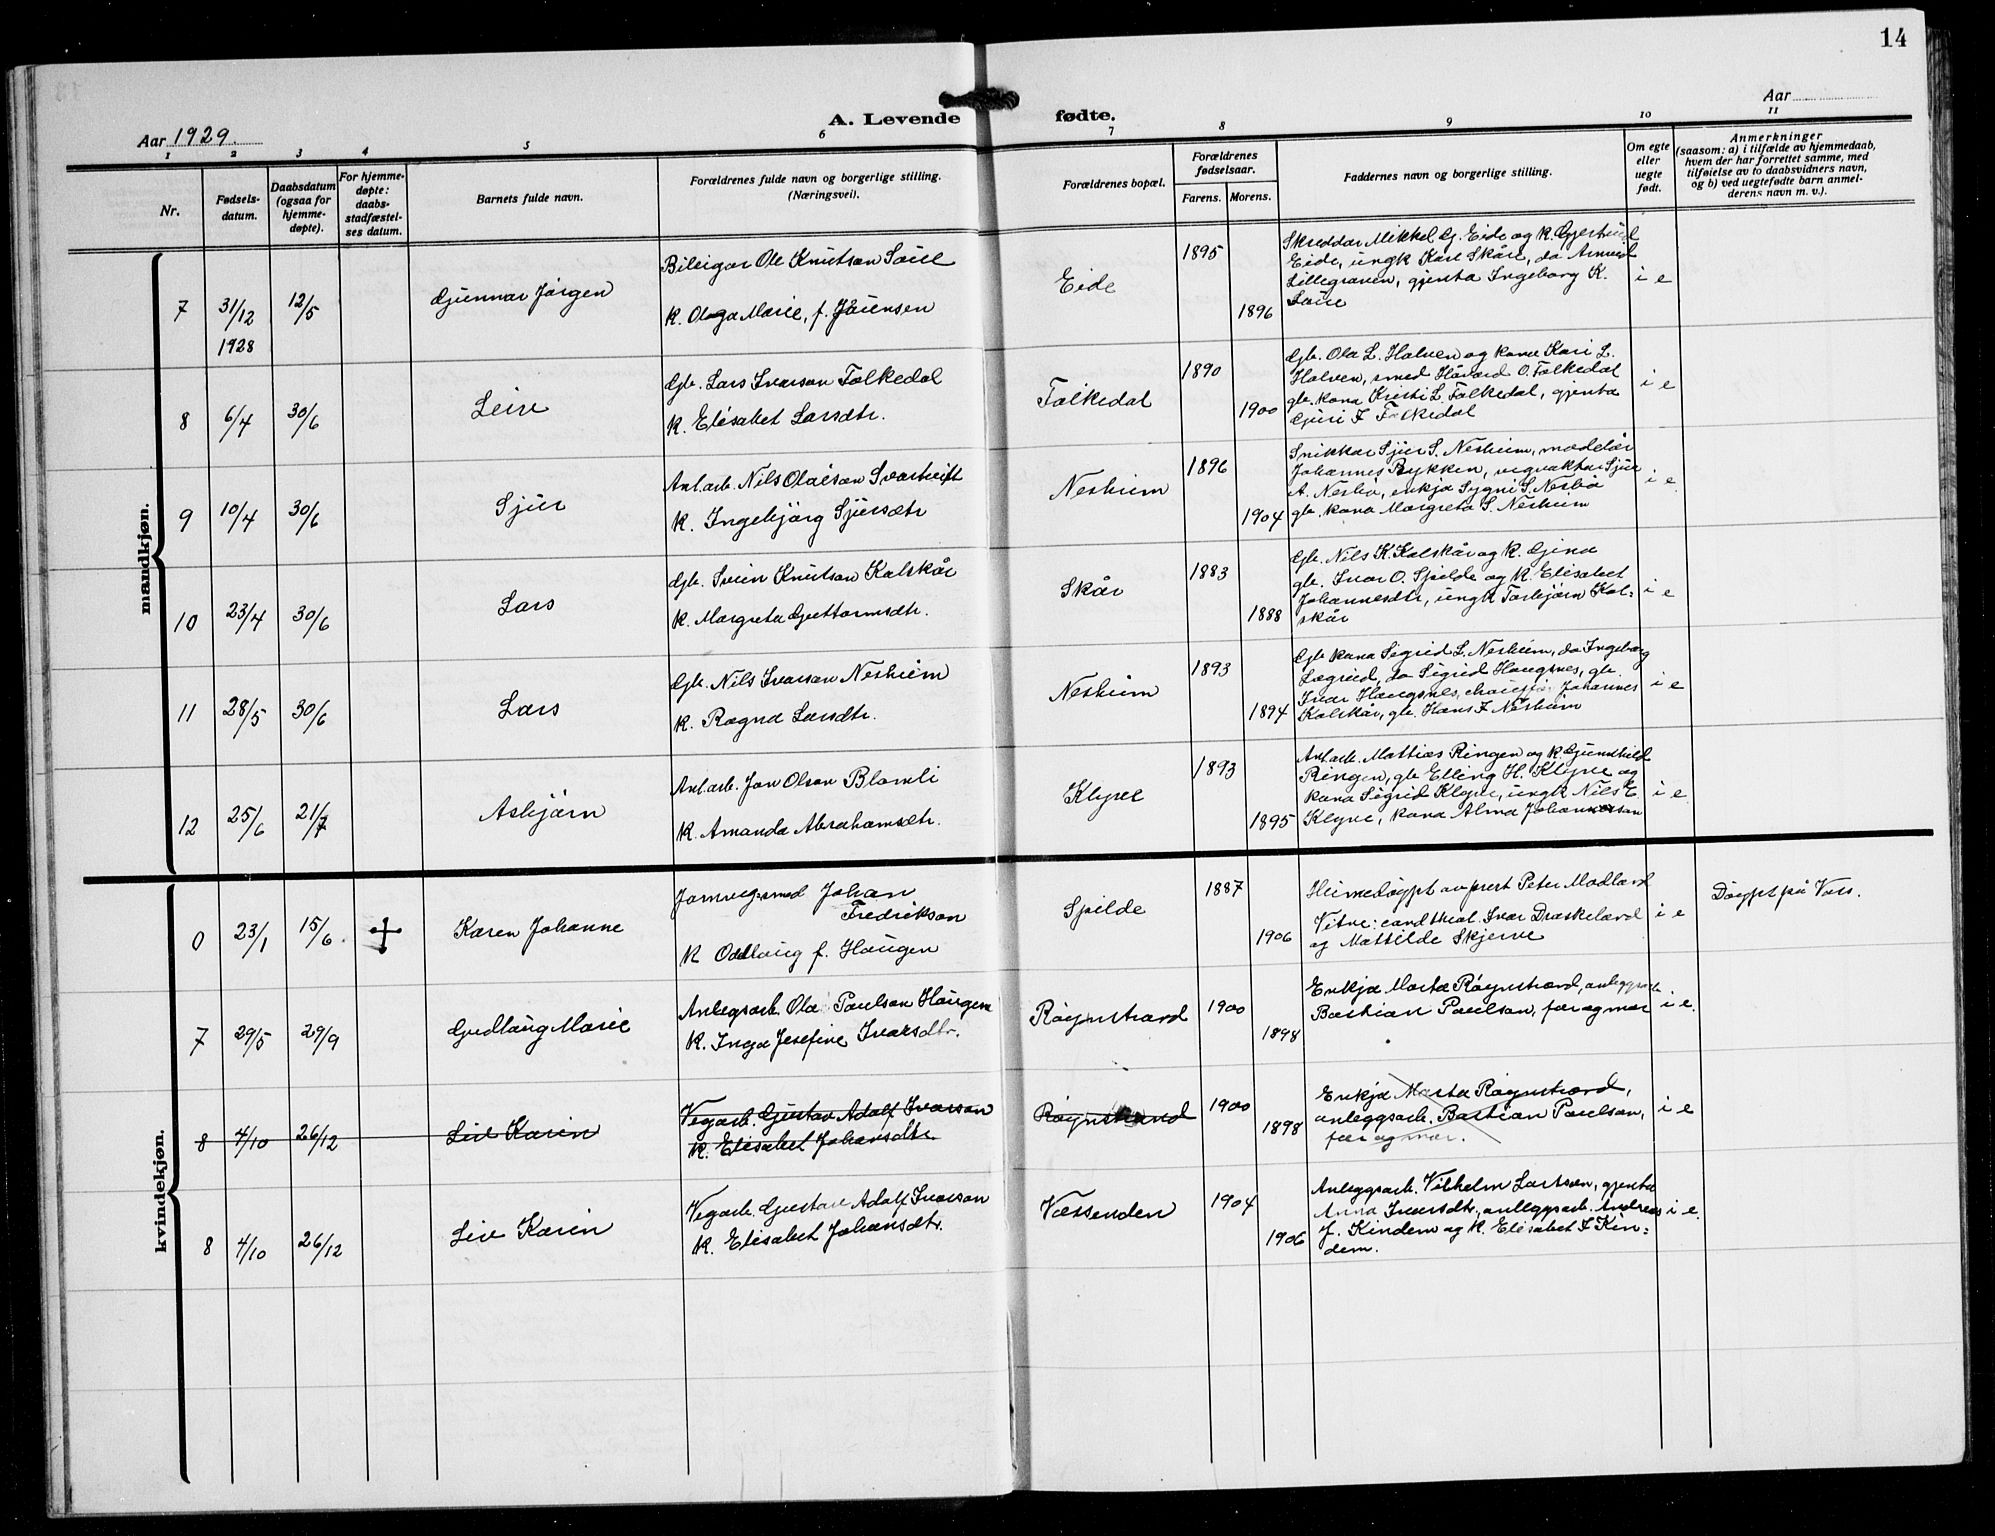 14
Aar 1929.
A. Levende fødte.
Aar
1 2 3 4 5 6 7 8 9 10 11
Nr.
Fødsels-
datum.
Daabsdatum
(ogsaa for
hjemme-
døpte).
For hjemme-
døpte:
daabs-
stadfæstel-
ses datum.
Barnets fulde navn.
Forældrenes fulde navn og borgerlige stilling.
(Næringsvei).
Forældrenes bopæl.
Forældrenes
fødselsaar.
Farens. Morens.
Faddernes navn og borgerlige stilling.
Om egte
eller
uegte
født.
Anmerkninger
(saasom: a) i tilfælde av hjemmedaab,
hvem der har forrettet samme, med
tilføielse av to daabsvidners navn,
og b) ved uegtefødte barn anmel-
derens navn m. v.).
mandkjøn.
7
31/12
1928
12/5
Gunnar Jørgen
Bileigar Ole Knutson
K. Olga Marie, f.
Eide
1895
1896
Skreddar Mikkel G. Eide og K. Gjertrud
Eide, ungk Kåre Skåre, do Arnvid
Lillegraven, gjenta Ingeborg K.
i e
8
6/4
30/6
Leiv
Gb. Lars Ivarson Folkedal
K. Elisabet Larsdtr.
Folkedal
1890
1900
Gb. Ola L. Halven og kona Kari L.
Halven, smed Håvard O. Folkedal
gb. kona Kristi L. Folkedal, gjenta
Guri I Folkedal
i e
9
10/4
30/6
Sjur
Anl.arb. Nils Olaison
K. Ingebjørg Sjursdtr
Nesheim
1896
1904
Snikkar Sjur S. Nesheim,
Johannes Rykken, vegvaktar Sjur
A. Nesbø, enkja Sygni S. Nesbø
gb. kona Margreta S. Nesheim
i e
10
23/4
30/6
Lars
Gb. Svein Knutson Kolskår
K. Margreta Guttormsdtr.
Skår
1883
1888
Gb. Nils K. Kolskår og K. Gjina
gb. Ivar O. Spilde og K. Elisabet
Johannesdtr, ungk Torbjørn Kol-
skår
i e
11
28/5
30/6
Lars
Gb. Nils Ivarson Nesheim
K. Ragna Larsdtr.
Nesheim
1893
1894
Gb kona Sigrid L. Nesheim, do Ingeborg
Lægreid, do Sigrid Haugsnes, gb.
Ivar Haugsnes, chauffør Johannes
Kolskår, gb. Hans I Nesheim
i e
12
25/6
21/7
Asbjørn
Anl.arb. Jon Olson Blomli
K. Amanda Abrahamsdtr.
Klyve
1893
1895
Anl.arb. Mattias Ringen og K. Gunnhild
Ringen, gb Elling H. Klyve og
kona Sigrid Klyve, ungk Nils E
Klyve, kona Alma Johannesson
i e
kvindekjøn.
0
23/1
15/6
Karen Johanne
Jarnvegsmed Johan
Fredrikson
K Oddlaug f. Haugen
Spilde
1887
1906
Heimedøypt av prest Peter Modland
Vitne: cand theol. Ivar Draskeland
og Mattilde Skjerve
i e
Døypt på Voss.
7
29/5
29/9
Gudlaug Marie
Anleggsarb. Ola Paulson Haugen
K. Inga Josefine Ivarsdtr.
Røynstrand
1900
1898
Enkja Marta Røynstrand, anleggsarb
Bastian Paulson, far og mor
i e
8
4/10
26/12
Liv Karin
Vegarb. Gustav Adolf Ivarson
K. Elisabet Johansdtr.
Røynstrand
1900
1898
Enkja Marta Røynstrand,
anleggsarb. Bastian Paulson,
far og mor.
i e
8
4/10
26/12
Liv Karin
Vegarb. Gustav Adolf Ivarson
K. Elisabet Johansdtr.
Vassenden
1904
1906
Anleggsarb. Vilhelm Larson, gjenta
Anna Ivarsdtr, anleggsarb. Andreas
J. Kindem og K. Elisabet I Kin-
dem.
i e